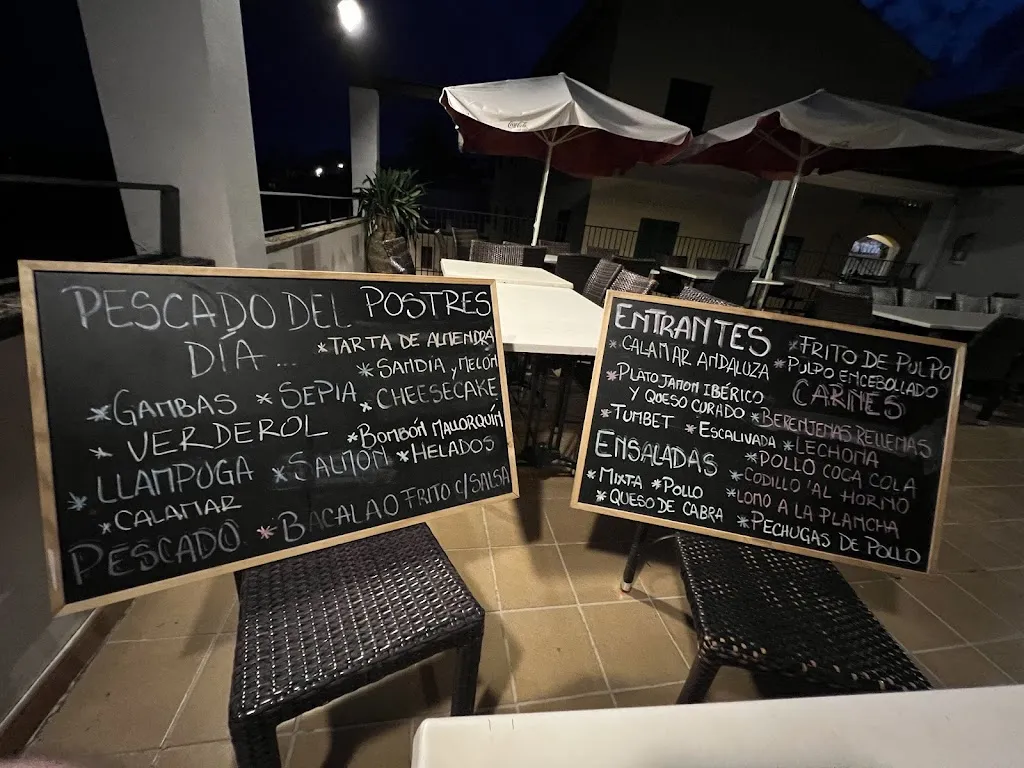 PESCADO DEL
DÍA ...
*GAMBAS *SEPIA
*VERDEROL
*LLAMPUGA *SALMÓN
*CALAMAR
PESCADO *BACALAO FRITO C/SALSA
POSTRES
*TARTA DE ALMENDRA
*SANDÍA y MELÓN
*CHEESECAKE
*BOMBÓN MALLORQUÍN
*HELADOS
ENTRANTES
*CALAMAR ANDALUZA
*PLATO JAMON IBÉRICO
Y QUESO CURADO
*TUMBET *ESCALIVADA
*FRITO DE PULPO
*PULPO ENCEBOLLADO
ENSALADAS
*MIXTA *POLLO
*QUESO DE CABRA
CARNES
*BERENJENAS RELLENAS
*LECHONA
*POLLO COCA COLA
*CODILLO 'AL HORNO
*LOMO A LA PLANCHA
*PECHUGAS DE POLLO
Coca-Cola